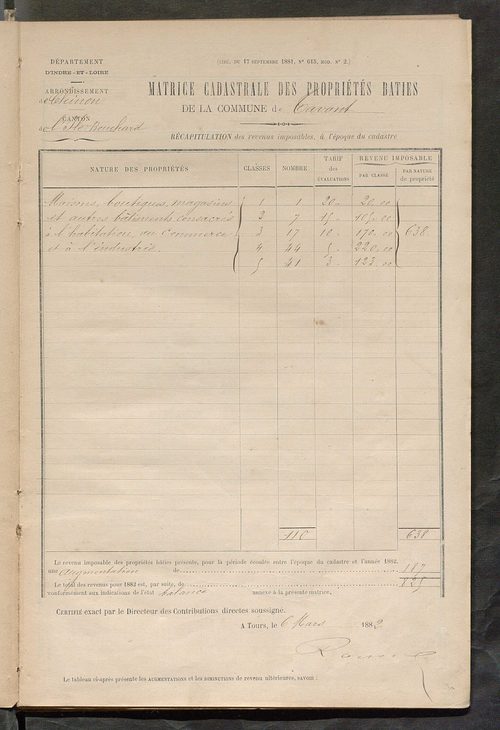 DÉPARTEMENT
D'INDRE-ET-LOIRE
ARRONDISSEMENT
de Chinon
CANTON
de l'Ile-Bouchard
(CIRC. DU 17 SEPTEMBRE 1881, N° 613, MOD. N° 2.)
MATRICE CADASTRALE DES PROPRIÉTÉS BATIES
DE LA COMMUNE de Tavant
RÉCAPITULATION des revenus imposables, à l'époque du cadastre
NATURE DES PROPRIÉTÉS CLASSES NOMBRE TARIF des ÉVALUATIONS REVENU IMPOSABLE PAR CLASSE PAR NATURE de propriété
Maisons, boutiques, magasins 1 1 20 20.00
et autres bâtiments consacrés 2 7 15 105.00
à l'habitation, au Commerce 3 17 10 170.00 638
et à l'industrie. 4 44 5 220.00
5 41 3 123.00
110 638
Le revenu imposable des propriétés bâties présente, pour la période écoulée entre l'époque du cadastre et l'année 1882,
une augmentation de 187
Le total des revenus pour 1882 est, par suite, de 825
conformément aux indications de l'état balance annexé à la présente matrice.
CERTIFIÉ exact par le Directeur des Contributions directes soussigné.
A Tours, le 6 Mars 1882
Le tableau ci-après présente les AUGMENTATIONS et les DIMINUTIONS de revenu ultérieures, SAVOIR :